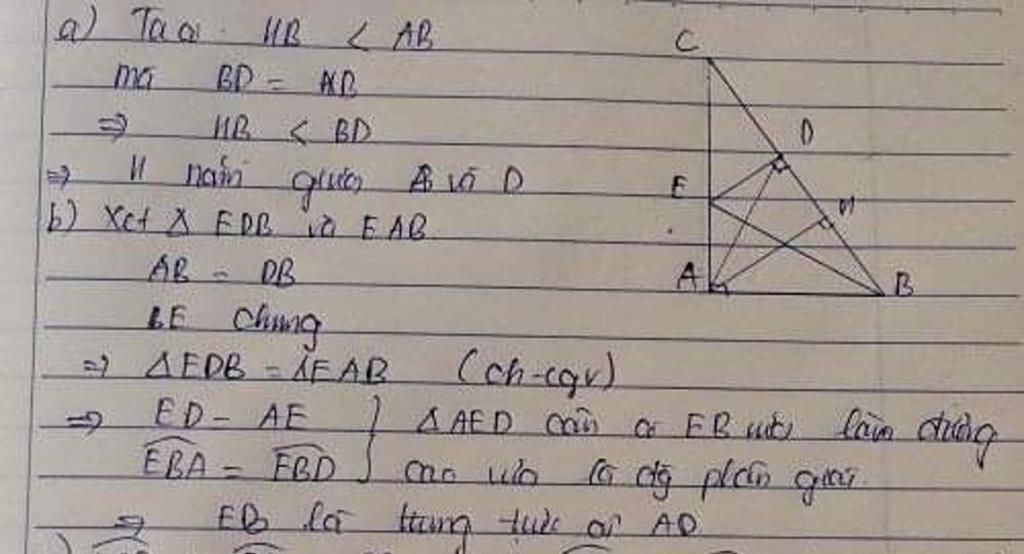 a) Ta có. HB < AB
mà BD = AB
=> HB < BD
=> H nằm giữa B và D
b) Xét Δ EDB và EAB
AB = DB
BE chung
=> ΔEDB = ΔEAB (ch-cgv)
=> ED = AE } ΔAED cân có EB vừa làm đường
EBA = EBD cao vừa là đg phân giác
=> EB là trung trực của AD
C
D
E
H
A
B